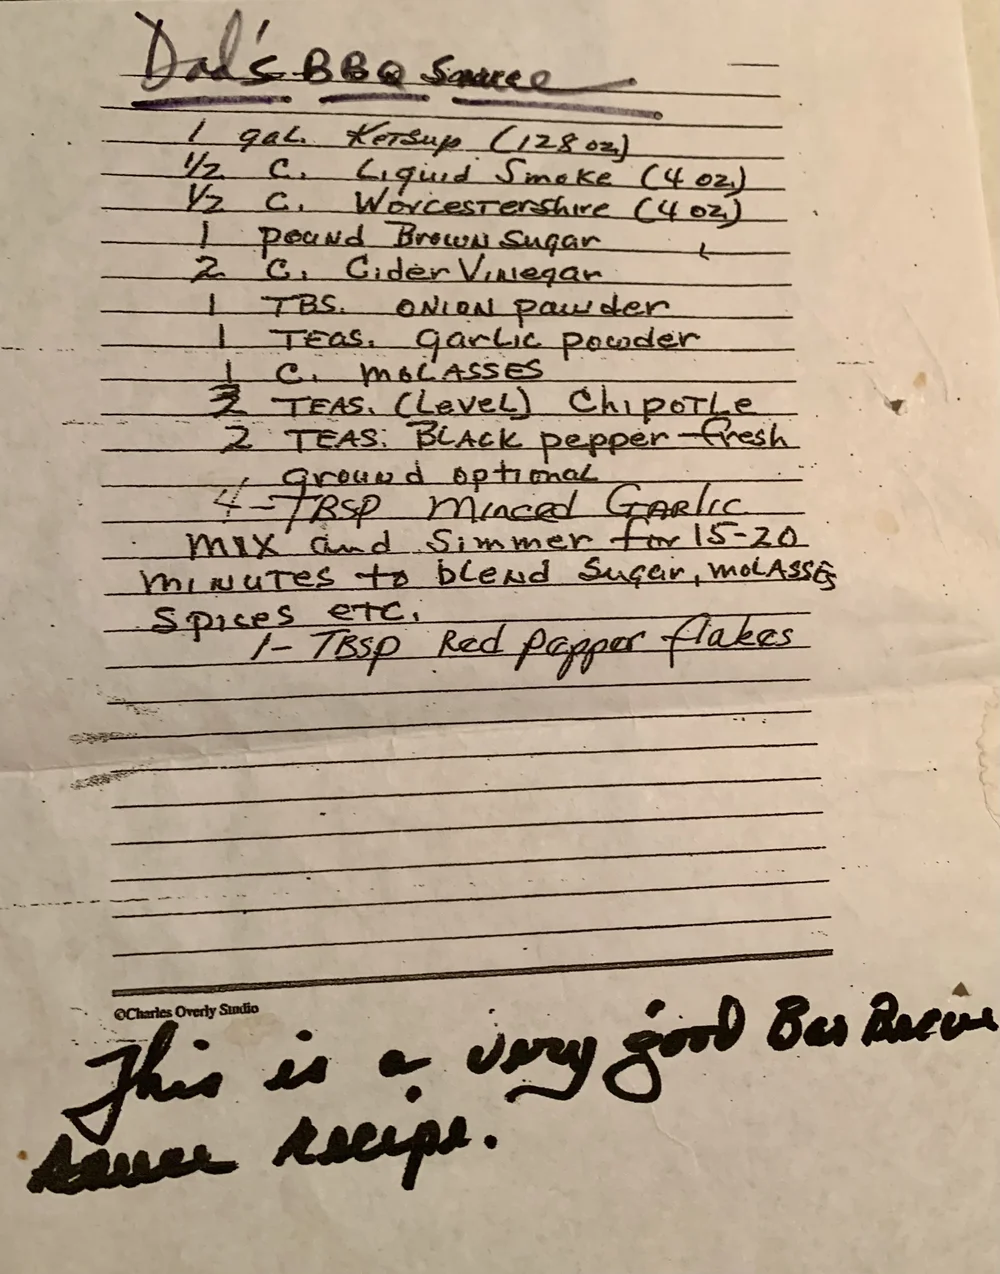 Dad's BBQ Sauce
1 gal. Ketsup (128 oz.)
1/2 C. Liquid Smoke (4 oz.)
1/2 C. Worcestershire (4 oz.)
1 pound Brown Sugar
2 C. Cider Vinegar
1 TBS. ONION pawder
1 TEAS. garlic powder
1 C. MOLASSES
TEAS. (Level) ChipoTLe
2 TEAS. BLACK pepper-fresh
ground optional
4-TBSP Minced GARLIC
Mix and Simmer for 15-20
MINUTES to blend Sugar, MOLASSES
Spices etc.
1-TBSP Red Pepper flakes
©Charles Overly Studio
This is a very good Bar Becue
sauce recipe.